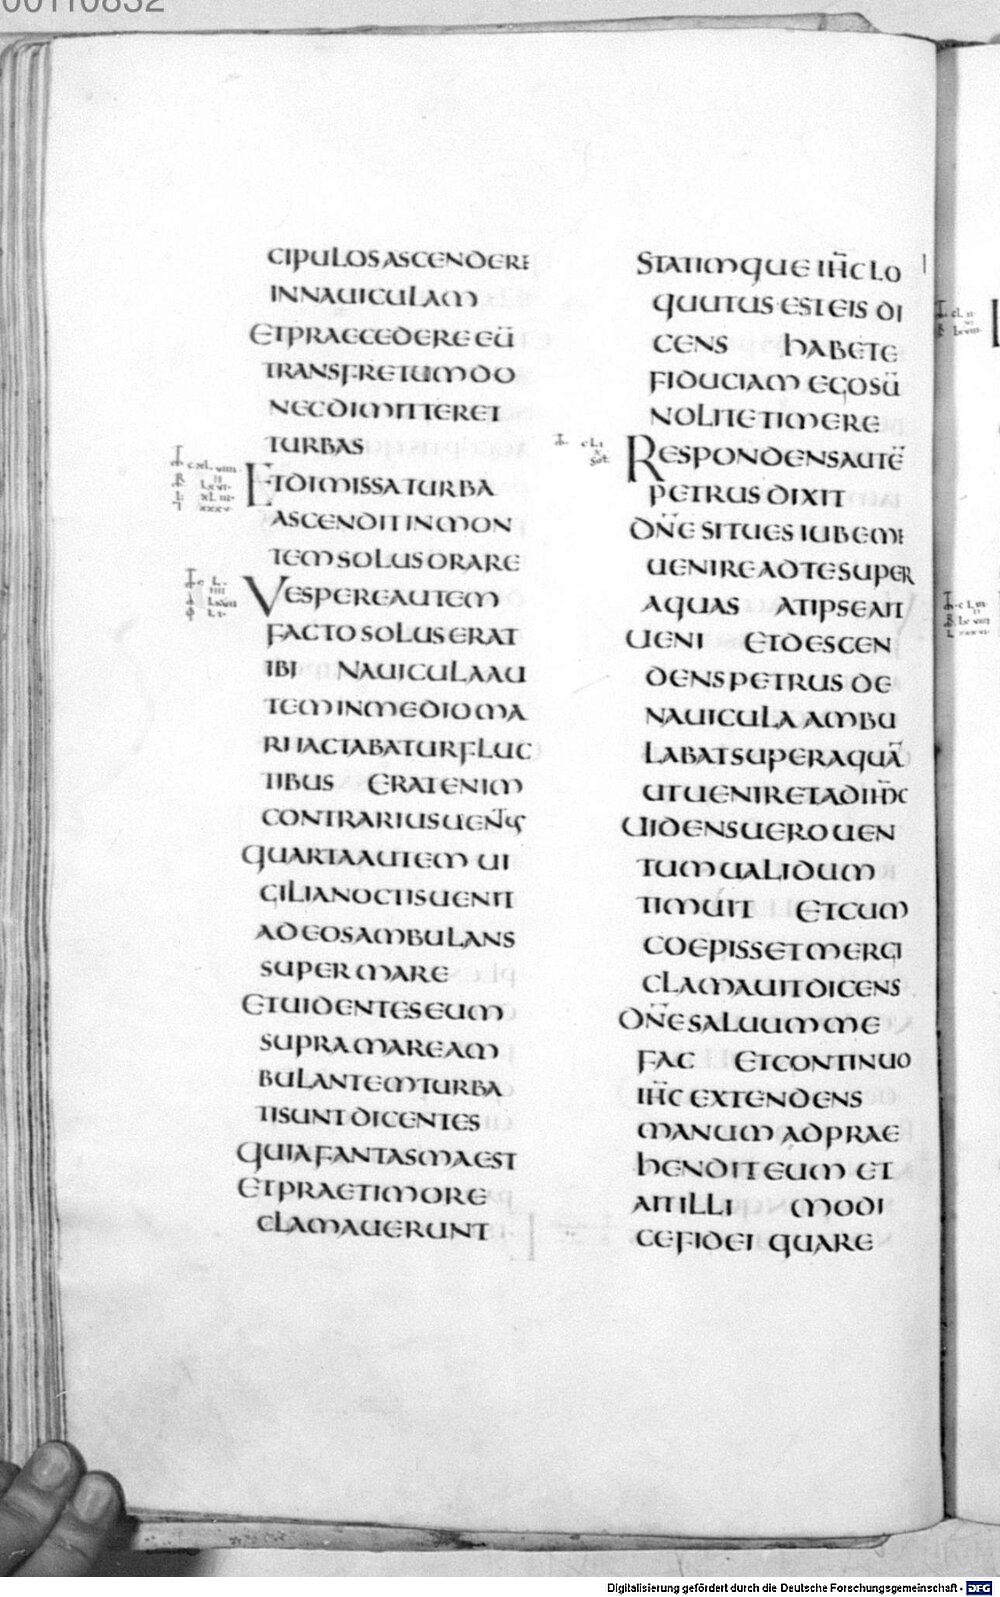 00110832
CIPULOS ASCENDERE
IN NAUICULAM
ET PRAECEDERE EŪ
TRANS FRETUM DO
NEC DIMITTERET
TURBAS
ET DIMISSA TURBA
ASCENDIT IN MON
TEM SOLUS ORARE
VESPERE AUTEM
FACTO SOLUS ERAT
IBI NAUICULA AU
TEM IN MEDIO MA
RI IACTABATUR FLUC
TIBUS ERAT ENIM
CONTRARIUS UENTUS
QUARTA AUTEM UI
GILIA NOCTIS UENIT
AD EOS AMBULANS
SUPER MARE
ET UIDENTES EUM
SUPRA MARE AM
BULANTEM TURBA
TI SUNT DICENTES
QUIA FANTASMA EST
ET PRAE TIMORE
CLAMAUERUNT
STATIMQUE IH̄C LO
QUUTUS EST EIS DI
CENS HABETE
FIDUCIAM EGO SŪ
NOLITE TIMERE
RESPONDENS AUTĒ
PETRUS DIXIT
DN̄E SI TU ES IUBE ME
UENIRE AD TE SUPER
AQUAS AT IPSE AIT
UENI ET DESCEN
DENS PETRUS DE
NAUICULA AMBU
LABAT SUPER AQUĀ
UT UENIRET AD IH̄C
UIDENS UERO UEN
TUM UALIDUM
TIMUIT ET CUM
COEPISSET MERGI
CLAMAUIT DICENS
DN̄E SALUUM ME
FAC ET CONTINUO
IH̄C EXTENDENS
MANUM ADPRAE
HENDIT EUM ET
AIT ILLI MODI
CE FIDEI QUARE
Digitalisierung gefördert durch die Deutsche Forschungsgemeinschaft - DFG